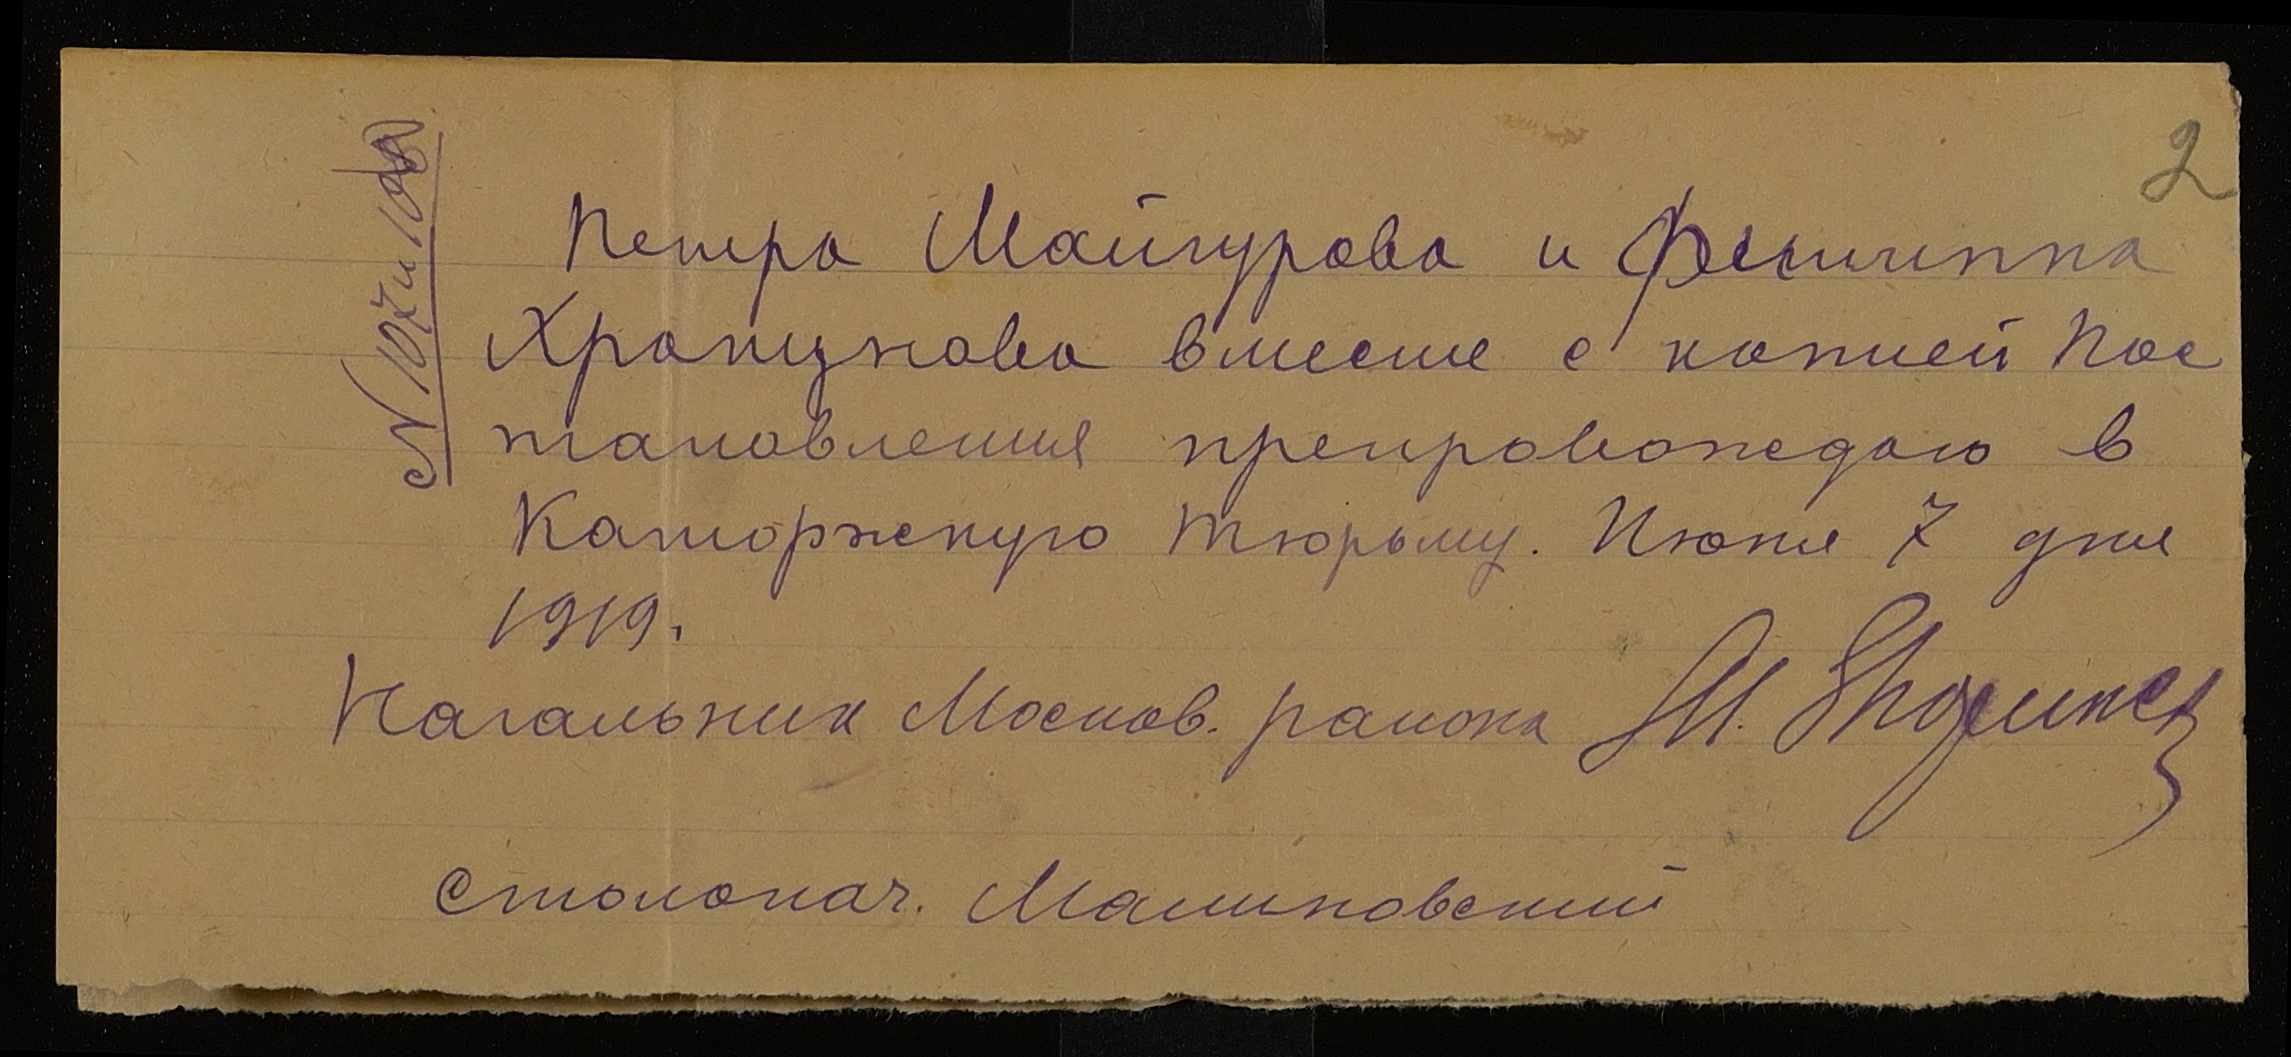 2
№ 107 и 108
Петра Майгурова и Филиппа
Храпунова вместе с копией Пос
тановления препровождаю в
Каторжную тюрьму. Июня 7 дня
1919.
Начальник Москов. района М.
Столонач. Малиновский